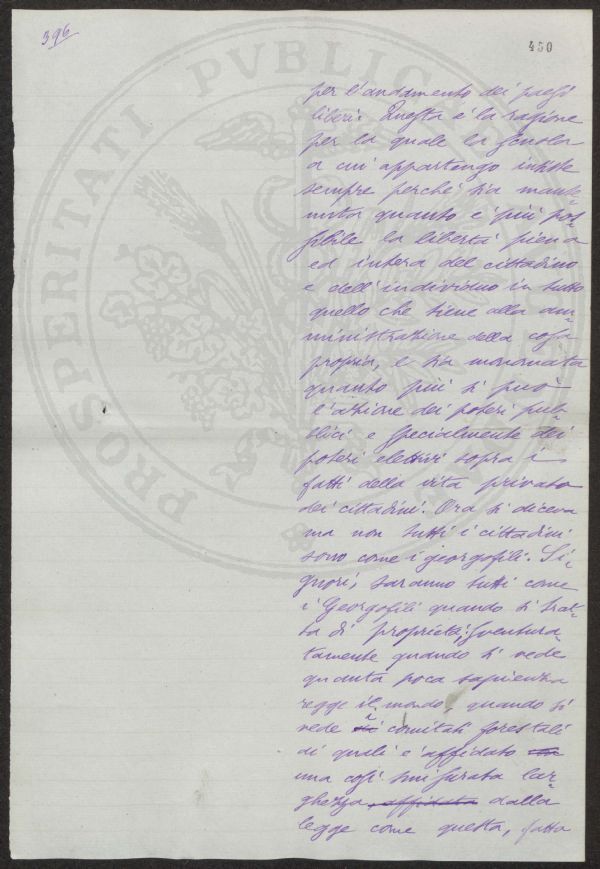 396
450
PROSPERITATI PVBLICAE
per l'andamento dei paesi
liberi. Questa è la ragione
per la quale la scuola
a cui appartengo insiste
sempre perché sia mante-
nuta quanto è più pos-
sibile la libertà piena
ed intera del cittadino
e dell'individuo in tutto
quello che tiene alla am-
ministrazione della cosa
propria, e sia
quanto più si può
l'azione dei poteri pub-
blici e specialmente dei
poteri elettivi sopra i
fatti della vita privata
dei cittadini. Ora si diceva
ma non tutti i cittadini
sono come i georgofili. Si-
gnori, saranno tutti come
i Georgofili quando si trat-
ta di proprietà; sventura-
tamente quando si vede
quanta poca sapienza
regge il mondo, quando si
vede i comitati forestali
ai quali è affidato
una così smisurata lar-
ghezza, affidata dalla
legge come questa, fatta